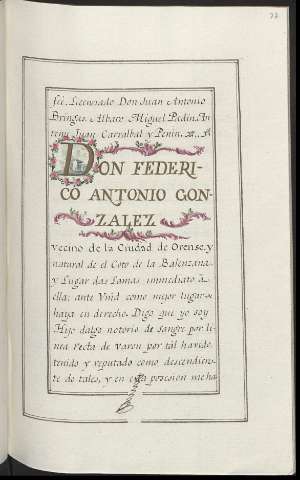 fee. Licenciado Don Juan Antonio
Bringas. Alvaro Miguel Pedin. An-
temi Juan Carralbal y Penin.
DON FEDERI-
CO ANTONIO GON-
ZALEZ
vecino de la Ciudad de Orense, y
natural de el Coto de la Balenzana
y Lugar das Lamas immediato á
ella; ante Vmd como mejor lugar
haya en derecho: Digo que yo soy
Hijo dalgo notorio de sangre por li-
nea recta de varon por tál havido,
tenido y reputado como descendien-
te de tales, y en esta posesion me ha